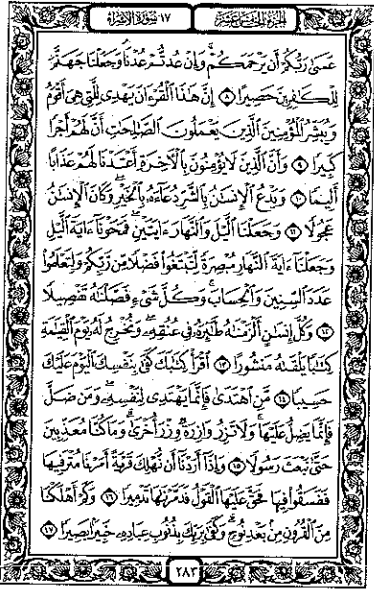 الجزء الخامس عشر
١٧ سورة الإسراء
عَسَىٰ رَبُّكُمْ أَن يَرْحَمَكُمْ وَإِنْ عُدتُّمْ عُدْنَا وَجَعَلْنَا جَهَنَّمَ
لِلْكَافِرِينَ حَصِيرًا ۝٨ إِنَّ هَٰذَا الْقُرْءَانَ يَهْدِي لِلَّتِي هِيَ أَقْوَمُ
وَيُبَشِّرُ الْمُؤْمِنِينَ الَّذِينَ يَعْمَلُونَ الصَّالِحَاتِ أَنَّ لَهُمْ أَجْرًا
كَبِيرًا ۝٩ وَأَنَّ الَّذِينَ لَا يُؤْمِنُونَ بِالْآخِرَةِ أَعْتَدْنَا لَهُمْ عَذَابًا
أَلِيمًا ۝١٠ وَيَدْعُ الْإِنسَٰنُ بِالشَّرِّ دُعَآءَهُ بِالْخَيْرِ وَكَانَ الْإِنسَٰنُ
عَجُولًا ۝١١ وَجَعَلْنَا الَّيْلَ وَالنَّهَارَ ءَايَتَيْنِ فَمَحَوْنَآ ءَايَةَ الَّيْلِ
وَجَعَلْنَآ ءَايَةَ النَّهَارِ مُبْصِرَةً لِّتَبْتَغُوا فَضْلًا مِّن رَّبِّكُمْ وَلِتَعْلَمُوا
عَدَدَ السِّنِينَ وَالْحِسَابَ وَكُلَّ شَيْءٍ فَصَّلْنَٰهُ تَفْصِيلًا
۝١٢ وَكُلَّ إِنسَٰنٍ أَلْزَمْنَٰهُ طَٰٓئِرَهُ فِي عُنُقِهِ وَنُخْرِجُ لَهُ يَوْمَ الْقِيَٰمَةِ
كِتَٰبًا يَلْقَىٰهُ مَنشُورًا ۝١٣ اقْرَأْ كِتَٰبَكَ كَفَىٰ بِنَفْسِكَ الْيَوْمَ عَلَيْكَ
حَسِيبًا ۝١٤ مَّنِ اهْتَدَىٰ فَإِنَّمَا يَهْتَدِي لِنَفْسِهِ وَمَن ضَلَّ
فَإِنَّمَا يَضِلُّ عَلَيْهَا وَلَا تَزِرُ وَازِرَةٌ وِزْرَ أُخْرَىٰ وَمَا كُنَّا مُعَذِّبِينَ
حَتَّىٰ نَبْعَثَ رَسُولًا ۝١٥ وَإِذَآ أَرَدْنَآ أَن نُّهْلِكَ قَرْيَةً أَمَرْنَا مُتْرَفِيهَا
فَفَسَقُوا فِيهَا فَحَقَّ عَلَيْهَا الْقَوْلُ فَدَمَّرْنَٰهَا تَدْمِيرًا ۝١٦ وَكَمْ أَهْلَكْنَا
مِنَ الْقُرُونِ مِنۢ بَعْدِ نُوحٍ وَكَفَىٰ بِرَبِّكَ بِذُنُوبِ عِبَادِهِ خَبِيرًۢا بَصِيرًا ۝١٧
٢٨٣